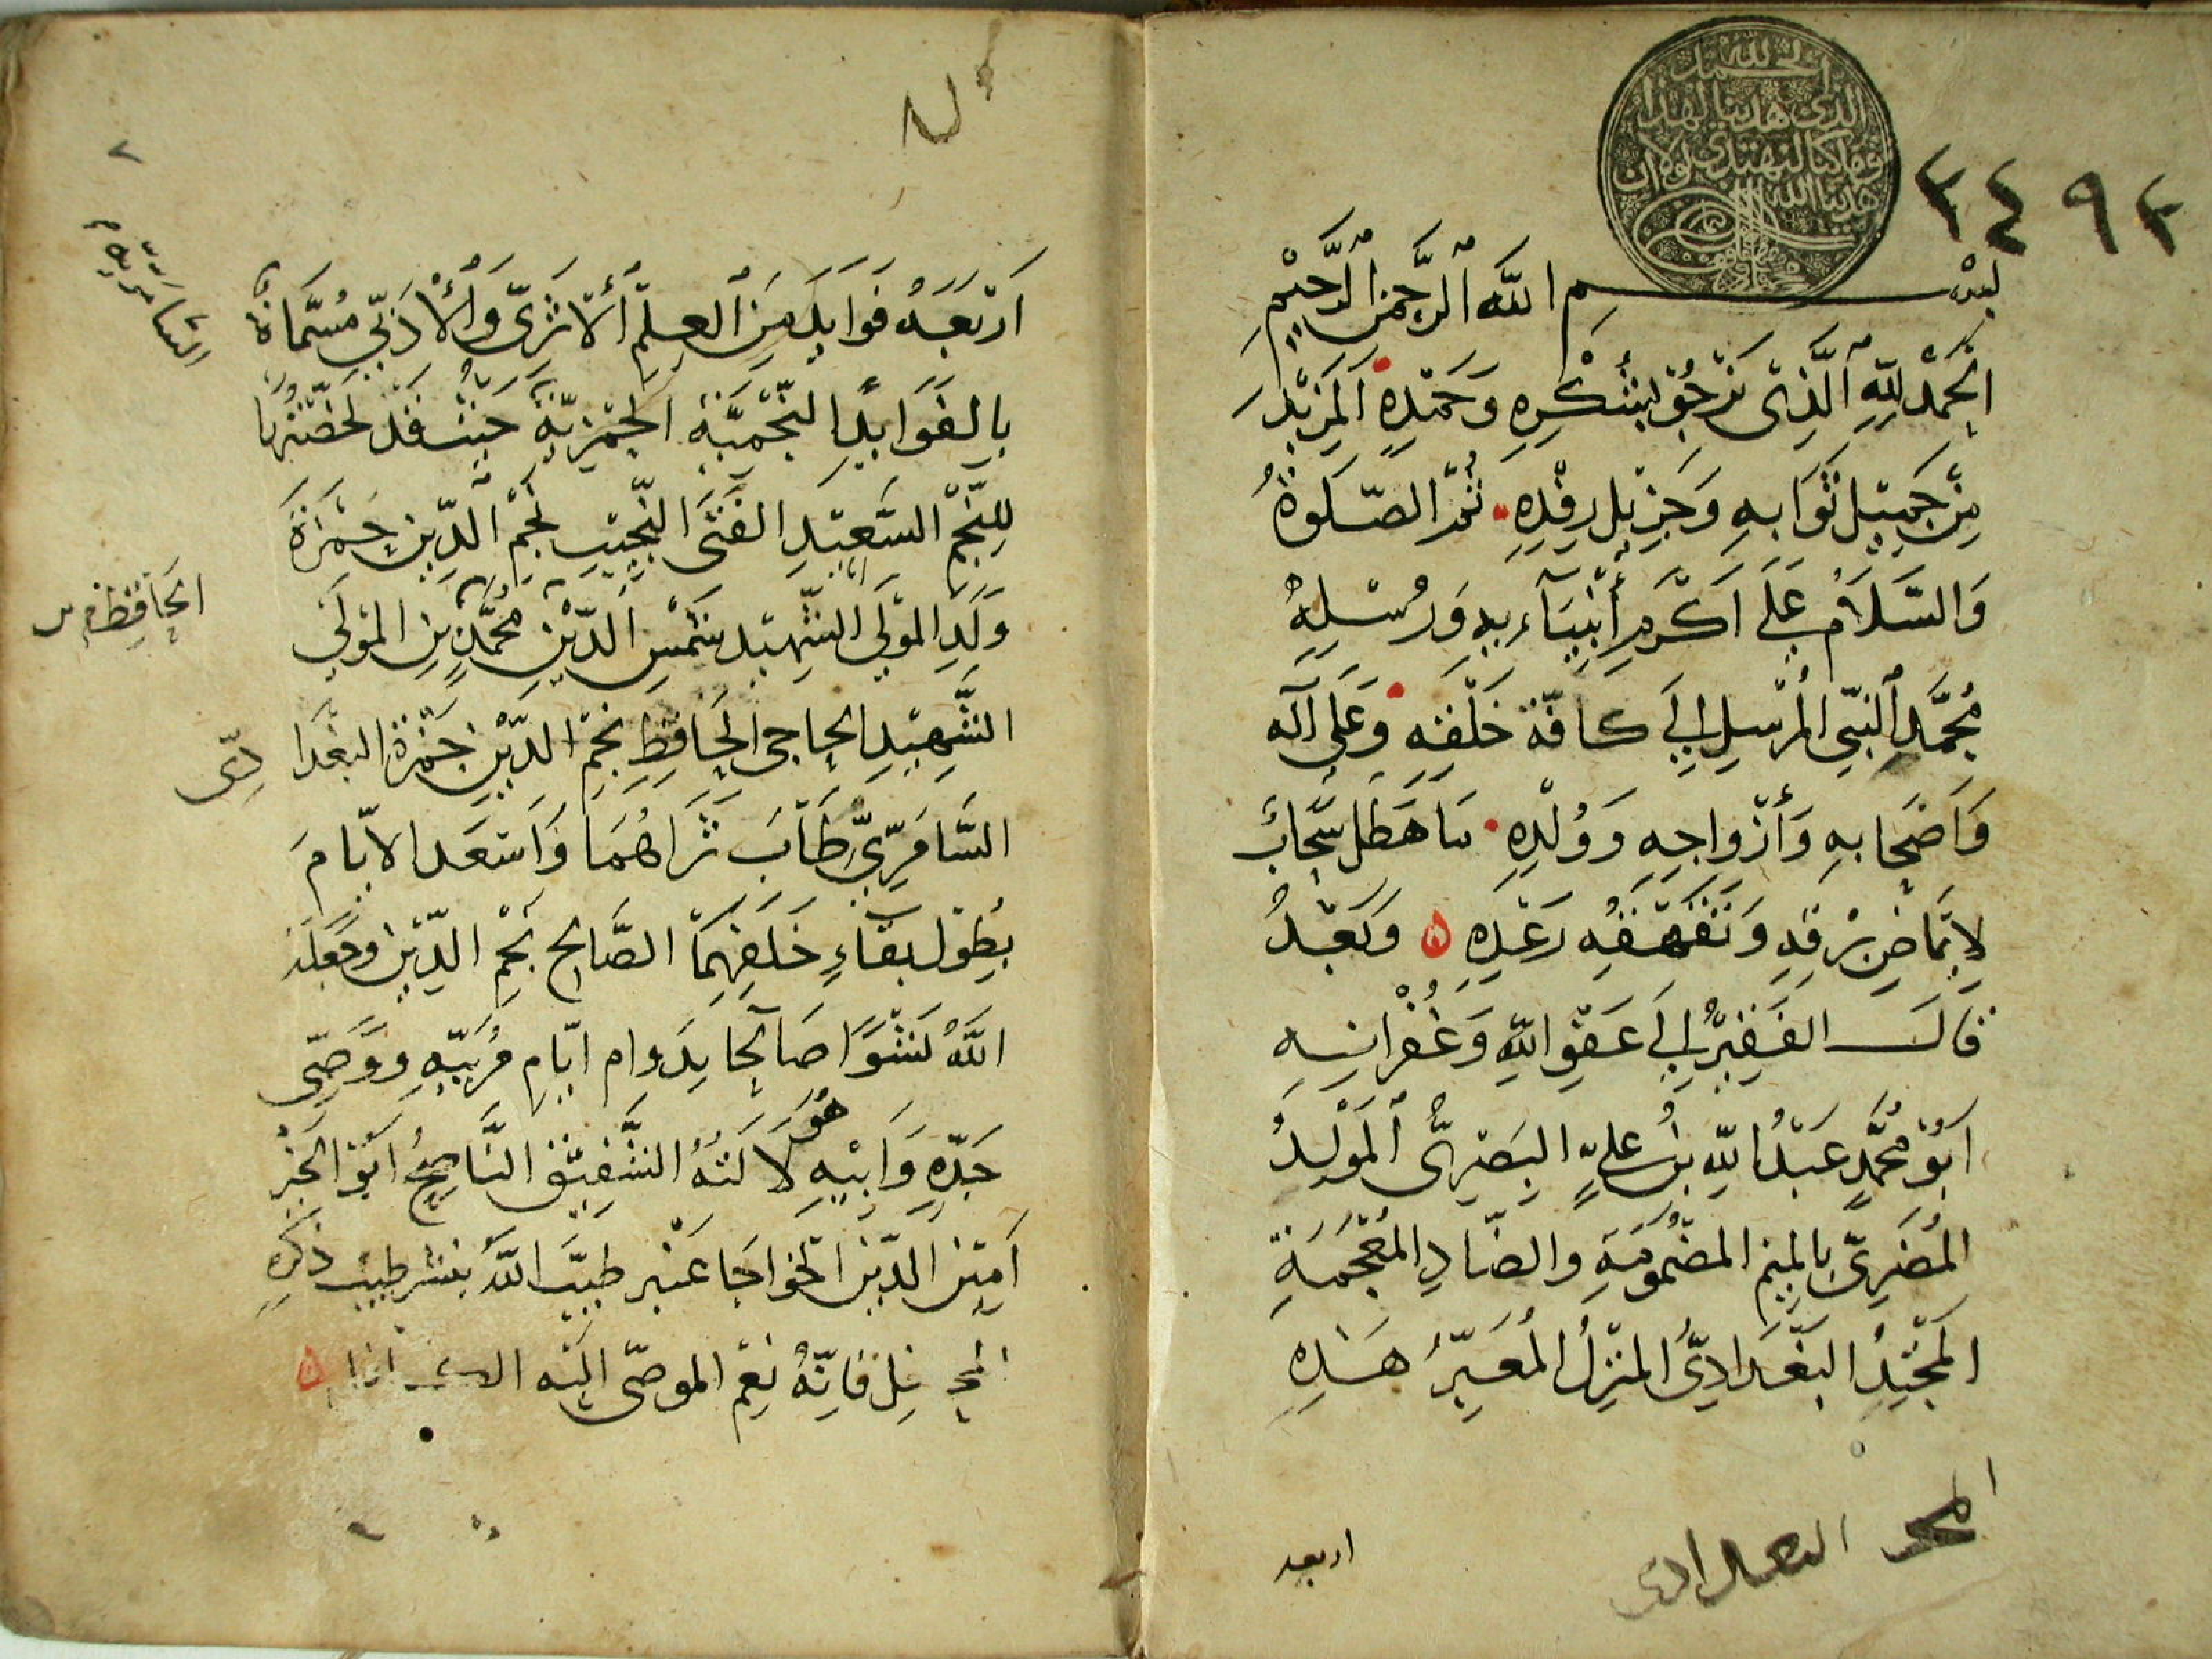 الحمد لله
الذي هدينا لهذا
وما كنا لنهتدي لولا ان
هدينا الله
٣٤٩٣
بِسْمِ اللَّهِ الرَّحْمٰنِ الرَّحِيْمِ
الْحَمْدُ لِلّٰهِ الَّذِى نَرْجُوْ بِشُكْرِهِ وَحَمْدِهِ الْمَزِيْدَ
مِنْ جَمِيْلِ ثَوَابِهِ وَجَزِيْلِ رِفْدِهِ ثُمَّ الصَّلَوةُ
وَالسَّلَامُ عَلَى اَكْرَمِ أَنْبِيَآءِهِ وَرُسْلِهِ
مُحَمَّدٍ النَّبِيِّ الْمُرْسَلِ اِلَى كافّة خَلْقِهِ وَعَلَى آلِهِ
وَاَصْحَابِهِ وَأَزْواجِهِ وَوُلْدِهِ مَا هَطَلَ سَحَابٌ
لِاِيْمَاضِ بَرْقِهِ وَتَقَهْقُهِ رَعْدِهِ ۞ وَبَعْدُ
قَالَ الفَقِيْرُ اِلَى عَفْوِ اللهِ وَغُفْرَانِهِ
اَبُوْ مُحَمَّدٍ عَبْدُ اللهِ بْنُ عَلِيٍّ البَصْرِىُّ الْمَوْلِدُ
المُضَرِىُّ بِالْمِيْمِ الْمَضْمُوْمَةِ وَالضَّادِ الْمُعْجَمَةِ
الْمَحْتِدُ الْبَغْدَادِىُّ الْمَنْزِلُ الْمُعَبِّرُ هَذِهِ
اربعه
المحتد البغدادى
اَرْبَعَةُ فَوَايِدَ مِنَ الْعِلْمِ الْأَثَرِىِّ وَالْأَدَبِيِّ مُسَمَّاةٌ
بِالفَوَايِدِ النَّجْمِيَّةِ الحَمْزِيَّةِ حَيْثُ قَدْ لَخَّصْتُهَا
لِلنَّجْمِ السَّعِيْدِ الفَتَى النَّجِيْبِ نَجْمِ الدِّيْنِ حَمْزَةَ
وَلَدِ المَوْلَى الشَّهِيْدِ شَمْسِ الدِّيْنِ مُحَمَّدٍ بْنِ المَوْلَى
الشَّهِيْدِ الْحاجى الْحَافِظِ نَجْمِ الدِّيْنِ حَمْزَةَ البَغْدَادِىّ
السَّامَرِّىِّ طَابَ ثَرَاهُمَا وَاَسْعَدَ الاَيَّامَ
بِطُوْلِ بَقَاءِ خَلَفِهِمَا الصَّالِحِ نَجْمِ الدِّيْنِ وَجَعَلَهُ
اللهُ نَشْوًا صَالِحًا بِدَوَامِ اَيَّامِ مُرَبِّيْهِ وَوَصِيِّ
جَدِّهِ وَاَبِيْهِ هُوَ لَالَتُهُ الشَّفِيْقُ النَّاصِحُ اَبُوْ الْخَيْرِ
اَمِيْنُ الدِّيْنِ الْخَوَاجَا عَنْبَر طَيَّبَ اللهُ بِنَشْرِ طِيْبِ ذِكْرِهِ
المحافل فَاِنَّهُ نِعْمَ الموصَى اِلَيْهِ
السَّامَرِّىّ م
الْحَافِظِ